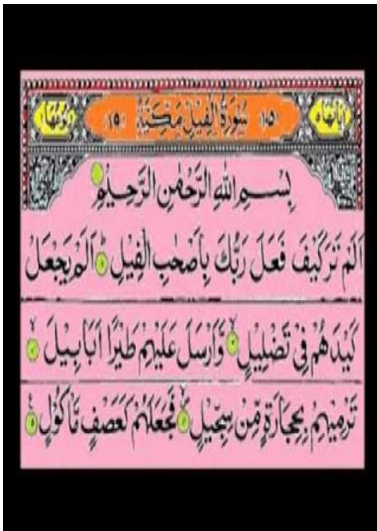 اٰیَاتُهَا ٥ ١٠٥ سُوْرَةُ الْفِيْلِ مَكِّيَّةٌ ١٩ رُكُوْعُهَا ١
بِسْمِ اللهِ الرَّحْمٰنِ الرَّحِيْمِ
اَلَمْ تَرَ كَيْفَ فَعَلَ رَبُّكَ بِاَصْحٰبِ الْفِيْلِ ۱ اَلَمْ يَجْعَلْ
كَيْدَهُمْ فِيْ تَضْلِيْلٍ ۲ وَّاَرْسَلَ عَلَيْهِمْ طَيْرًا اَبَابِيْلَ ۳
تَرْمِيْهِمْ بِحِجَارَةٍ مِّنْ سِجِّيْلٍ ۴ فَجَعَلَهُمْ كَعَصْفٍ مَّاْكُوْلٍ ۵